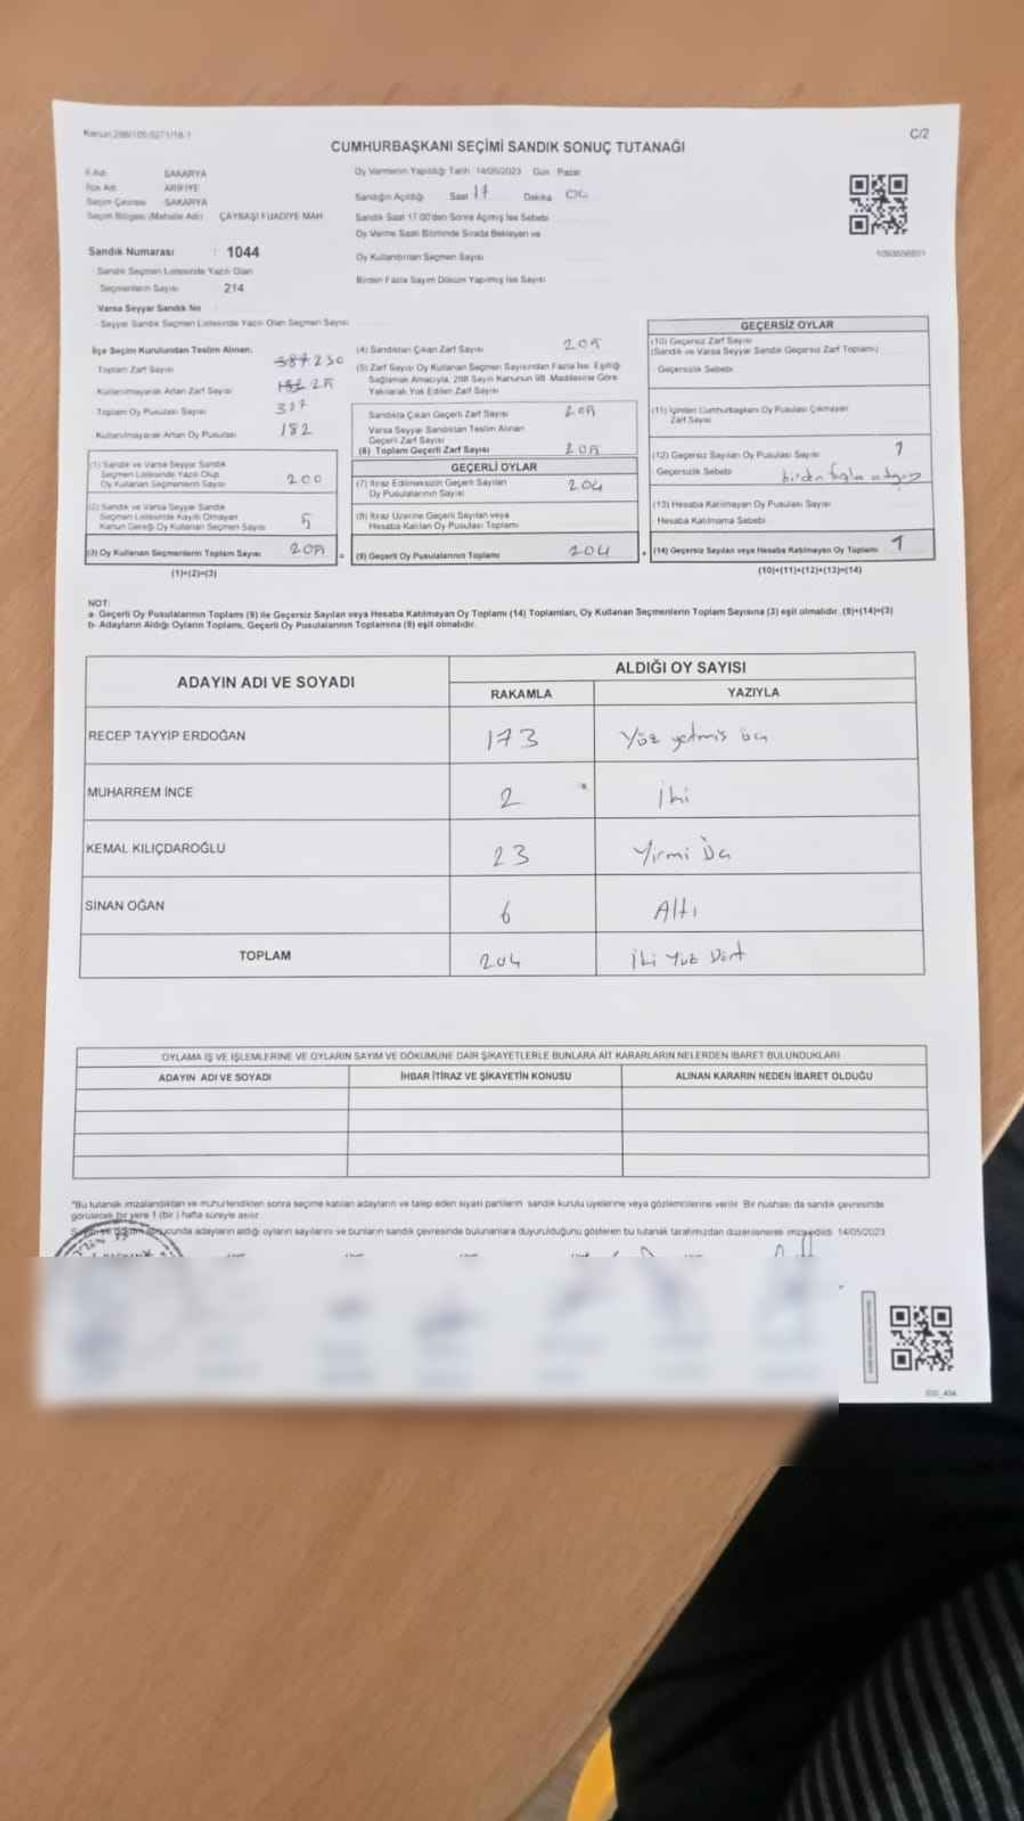 C/2
CUMHURBAŞKANI SEÇİMİ SANDIK SONUÇ TUTANAĞI
İl Adı: SAKARYA
İlçe Adı: ARİFİYE
Seçim Çevresi SAKARYA
Seçim Bölgesi (Mahalle Adı) : ÇAYBAŞI FUADİYE MAH.
Oy Vermenin Yapıldığı Tarih 14/05/2023 Gün Pazar
Sandığın Açıldığı Saat 17 Dakika 00
Sandık Saat 17.00'den Sonra Açılmış İse Sebebi
Oy Verme Saati Bitiminde Sırada Bekleyen ve
Oy Kullandırılan Seçmen Sayısı
Birden Fazla Sayım Döküm Yapılmış İse Sayısı
Sandık Numarası : 1044
Sandık Seçmen Listesinde Yazılı Olan
Seçmenlerin Sayısı 214
Varsa Seyyar Sandık No
Seyyar Sandık Seçmen Listesinde Yazılı Olan Seçmen Sayısı
İlçe Seçim Kurulundan Teslim Alınan;
Toplam Zarf Sayısı 387 230
Kullanılmayarak Artan Zarf Sayısı 182 25
Toplam Oy Pusulası Sayısı 387
Kullanılmayarak Artan Oy Pusulası 182
(1) Sandık ve Varsa Seyyar Sandık
Seçmen Listesinde Yazılı Olup
Oy Kullanan Seçmenlerin Sayısı 200
(2) Sandık ve Varsa Seyyar Sandık
Seçmen Listesinde Kayıtlı Olmayan
Kanun Gereği Oy Kullanan Seçmen Sayısı 5
(3) Oy Kullanan Seçmenlerin Toplam Sayısı 205
(1)+(2)=(3)
(4) Sandıktan Çıkan Zarf Sayısı 205
(5) Zarf Sayısı Oy Kullanan Seçmen Sayısından Fazla İse, Eşitliği
Sağlamak Amacıyla, 298 Sayılı Kanunun 98. Maddesine Göre
Yakılarak Yok Edilen Zarf Sayısı
Sandıkta Çıkan Geçerli Zarf Sayısı 205
Varsa Seyyar Sandıktan Teslim Alınan
Geçerli Zarf Sayısı
(6) Toplam Geçerli Zarf Sayısı 205
GEÇERLİ OYLAR
(7) İtiraz Edilmeksizin Geçerli Sayılan
Oy Pusulalarının Sayısı 204
(8) İtiraz Üzerine Geçerli Sayılan veya
Hesaba Katılan Oy Pusulası Toplamı
(9) Geçerli Oy Pusulalarının Toplamı 204
GEÇERSİZ OYLAR
(10) Geçersiz Zarf Sayısı
(Sandık ve Varsa Seyyar Sandık Geçersiz Zarf Toplamı)
Geçersizlik Sebebi
(11) İçinden Cumhurbaşkanı Oy Pusulası Çıkmayan
Zarf Sayısı
(12) Geçersiz Sayılan Oy Pusulası Sayısı 1
Geçersizlik Sebebi birden fazla
(13) Hesaba Katılmayan Oy Pusulası Sayısı
Hesaba Katılmama Sebebi
(14) Geçersiz Sayılan veya Hesaba Katılmayan Oy Toplamı 1
(10)+(11)+(12)+(13)=(14)
NOT:
a- Geçerli Oy Pusulalarının Toplamı (9) ile Geçersiz Sayılan veya Hesaba Katılmayan Oy Toplamı (14) Toplamları, Oy Kullanan Seçmenlerin Toplam Sayısına (3) eşit olmalıdır. (9)+(14)=(3)
b- Adayların Aldığı Oyların Toplamı, Geçerli Oy Pusulalarının Toplamına (9) eşit olmalıdır.
ADAYIN ADI VE SOYADI
ALDIĞI OY SAYISI
RAKAMLA YAZIYLA
RECEP TAYYİP ERDOĞAN 173 Yüz yetmis üç
MUHARREM İNCE 2 İki
KEMAL KILIÇDAROĞLU 23 Yirmi Üç
SİNAN OĞAN 6 Altı
TOPLAM 204 İki Yüz Dört
OYLAMA İŞ VE İŞLEMLERİNE VE OYLARIN SAYIM VE DÖKÜMÜNE DAİR ŞİKAYETLERLE BUNLARA AİT KARARLARIN NELERDEN İBARET BULUNDUKLARI
ADAYIN ADI VE SOYADI İHBAR İTİRAZ VE ŞİKAYETİN KONUSU ALINAN KARARIN NEDEN İBARET OLDUĞU
"Bu tutanak imzalandıktan ve mühürlendikten sonra seçime katılan adayların ve talep eden siyasi partilerin sandık kurulu üyelerine veya gözlemcilerine verilir. Bir nüshası da sandık çevresinde
görülecek bir yere 1 (bir ) hafta süreyle asılır.
adayların aldığı oyların sayılarını ve bunların sandık çevresinde bulunanlara duyurulduğunu gösteren bu tutanak tarafımızdan düzenlenerek imza edildi. 14/05/2023